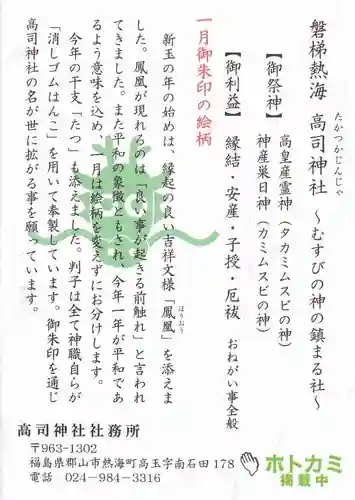 磐梯熱海　高司神社　～むすびの神の鎮まる社～
たかつかじんじゃ
【御祭神】　高皇産霊神（タカミムスビの神）
神産巣日神（カミムスビの神）
【御利益】　縁結・安産・子授・厄祓　おねがい事全般
一月御朱印の絵柄
新玉の年の始めは、縁起の良い吉祥文様「鳳凰」を添えま
ほうおう
した。鳳凰が現れるのは「良い事が起きる前触れ」と言われ
てきました。また平和の象徴ともされ、今年一年が平和であ
るよう意味を込め、一月は絵柄を変えずにお分けします。
今年の干支「たつ」も添えました。判子は全て神職自らが
「消しゴムはんこ」を用いて奉製しています。御朱印を通じ
高司神社の名が世に拡がる事を願っています。
高司神社社務所
〒963-1302
福島県郡山市熱海町高玉字南石田178
電話　024-984-3316
ホトカミ
掲載中